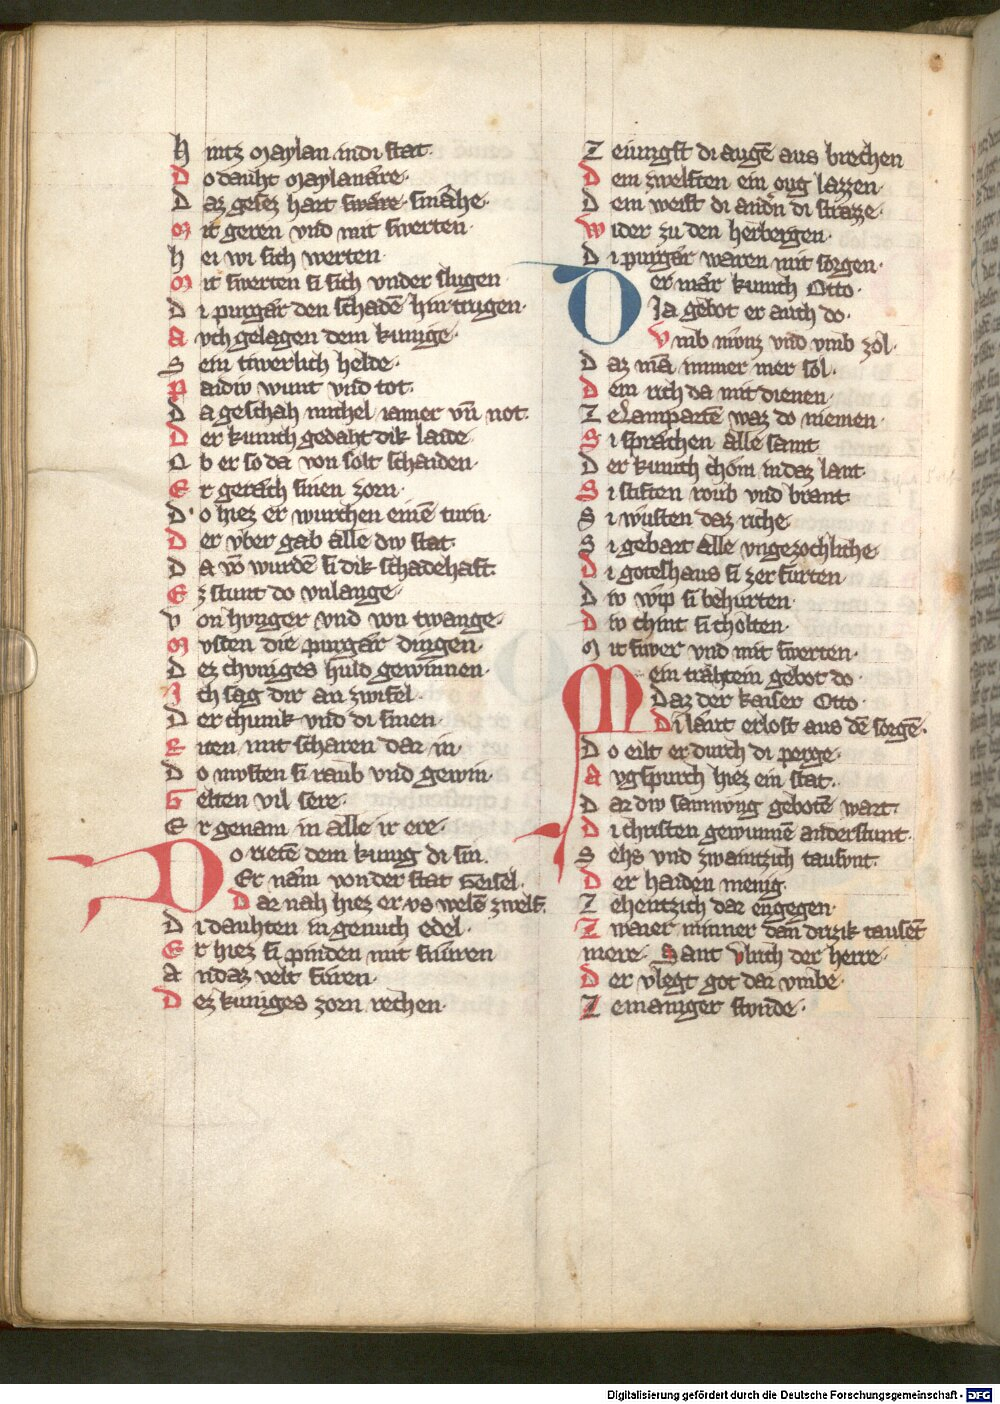 Hintz Maylan in di stat·
Do dauht Maylanåre·
Daz gesez hart swåre· småhe·
Mit geren vnd mit swerten·
hei wi sich werten·
Mit swerten si sich vnder slugen·
Di purgår den schadē hin trugen·
Auch gelagen dem kunige·
Sein tiwerlich helde·
Paidiw wunt vnd tot·
Da geschah michel iamer vn̄ not·
Der kunich gedaht dik laide·
Ob er so da von solt schaiden·
Er geråch sinen zorn·
Do hiez er wurchen einē turn·
Der vber gab alle diw stat·
Da vō wurdē si dik schadehaft·
Ez stunt do vnlange·
Von hvnger vnd von twange·
Mvsten die purgår dingen·
Dez chvniges huld gewinnen·
Ich sag dir an zwifel·
Der chunik vnd di sinen·
Riten mit scharen dar in·
Do mvsten si raub vnd gewin·
Gelten vil sere·
Er genam in alle ir ere·
Do rietē dem kunig di sin·
Er nåm von der stat Geisel·
Dar nah hiez er vs welē zwelf·
Di dauhten in genuch edel·
Er hiez si pinden mit snůren
An daz velt fůren·
Dez kuniges zorn rechen·
Ze iungst di augē aus brechen
Dem zwelften ein oug lazzen·
Dem weist di andn̄ di strazze·
Wider zu den herbergen·
Di purgår waren mit sorgen·
Der mår kunich Otto·
Ja gebot er auch do·
Vmb mvnz vnd vmb zol·
Daz mā immer mer sol·
Dem rich da mit dienen·
Ze Lampartē waz do niemen·
Si språchen alle samt
Der kunich chom in daz lant·
Si stiften roub vnd brant·
Si wusten daz riche
Si gebart alle vngezochliche·
Di goteshaus si zerfůrten·
Diw wip si behurten·
Diw chint si cholten·
Mit fiwer vnd mit swerten·
Mein tråhtein gebot do·
Daz der kaiser Otto·
Di låut erlost aus dē sorgē·
Do eilt er durch di perge·
Avgspurch hiez ein stat·
Dar diw samnvng gebotē wart·
Di christen gewunnē anderstunt·
Sehs vnd zwaintzich tausvnt·
Der haiden menig·
Zehentzich dar engegen·
Zwaier minner dan drizik tausēt
mere· Sant Vlrich der herre·
Der vlegt got dar vmbe·
Ze maniger stunde·
Digitalisierung gefördert durch die Deutsche Forschungsgemeinschaft - DFG